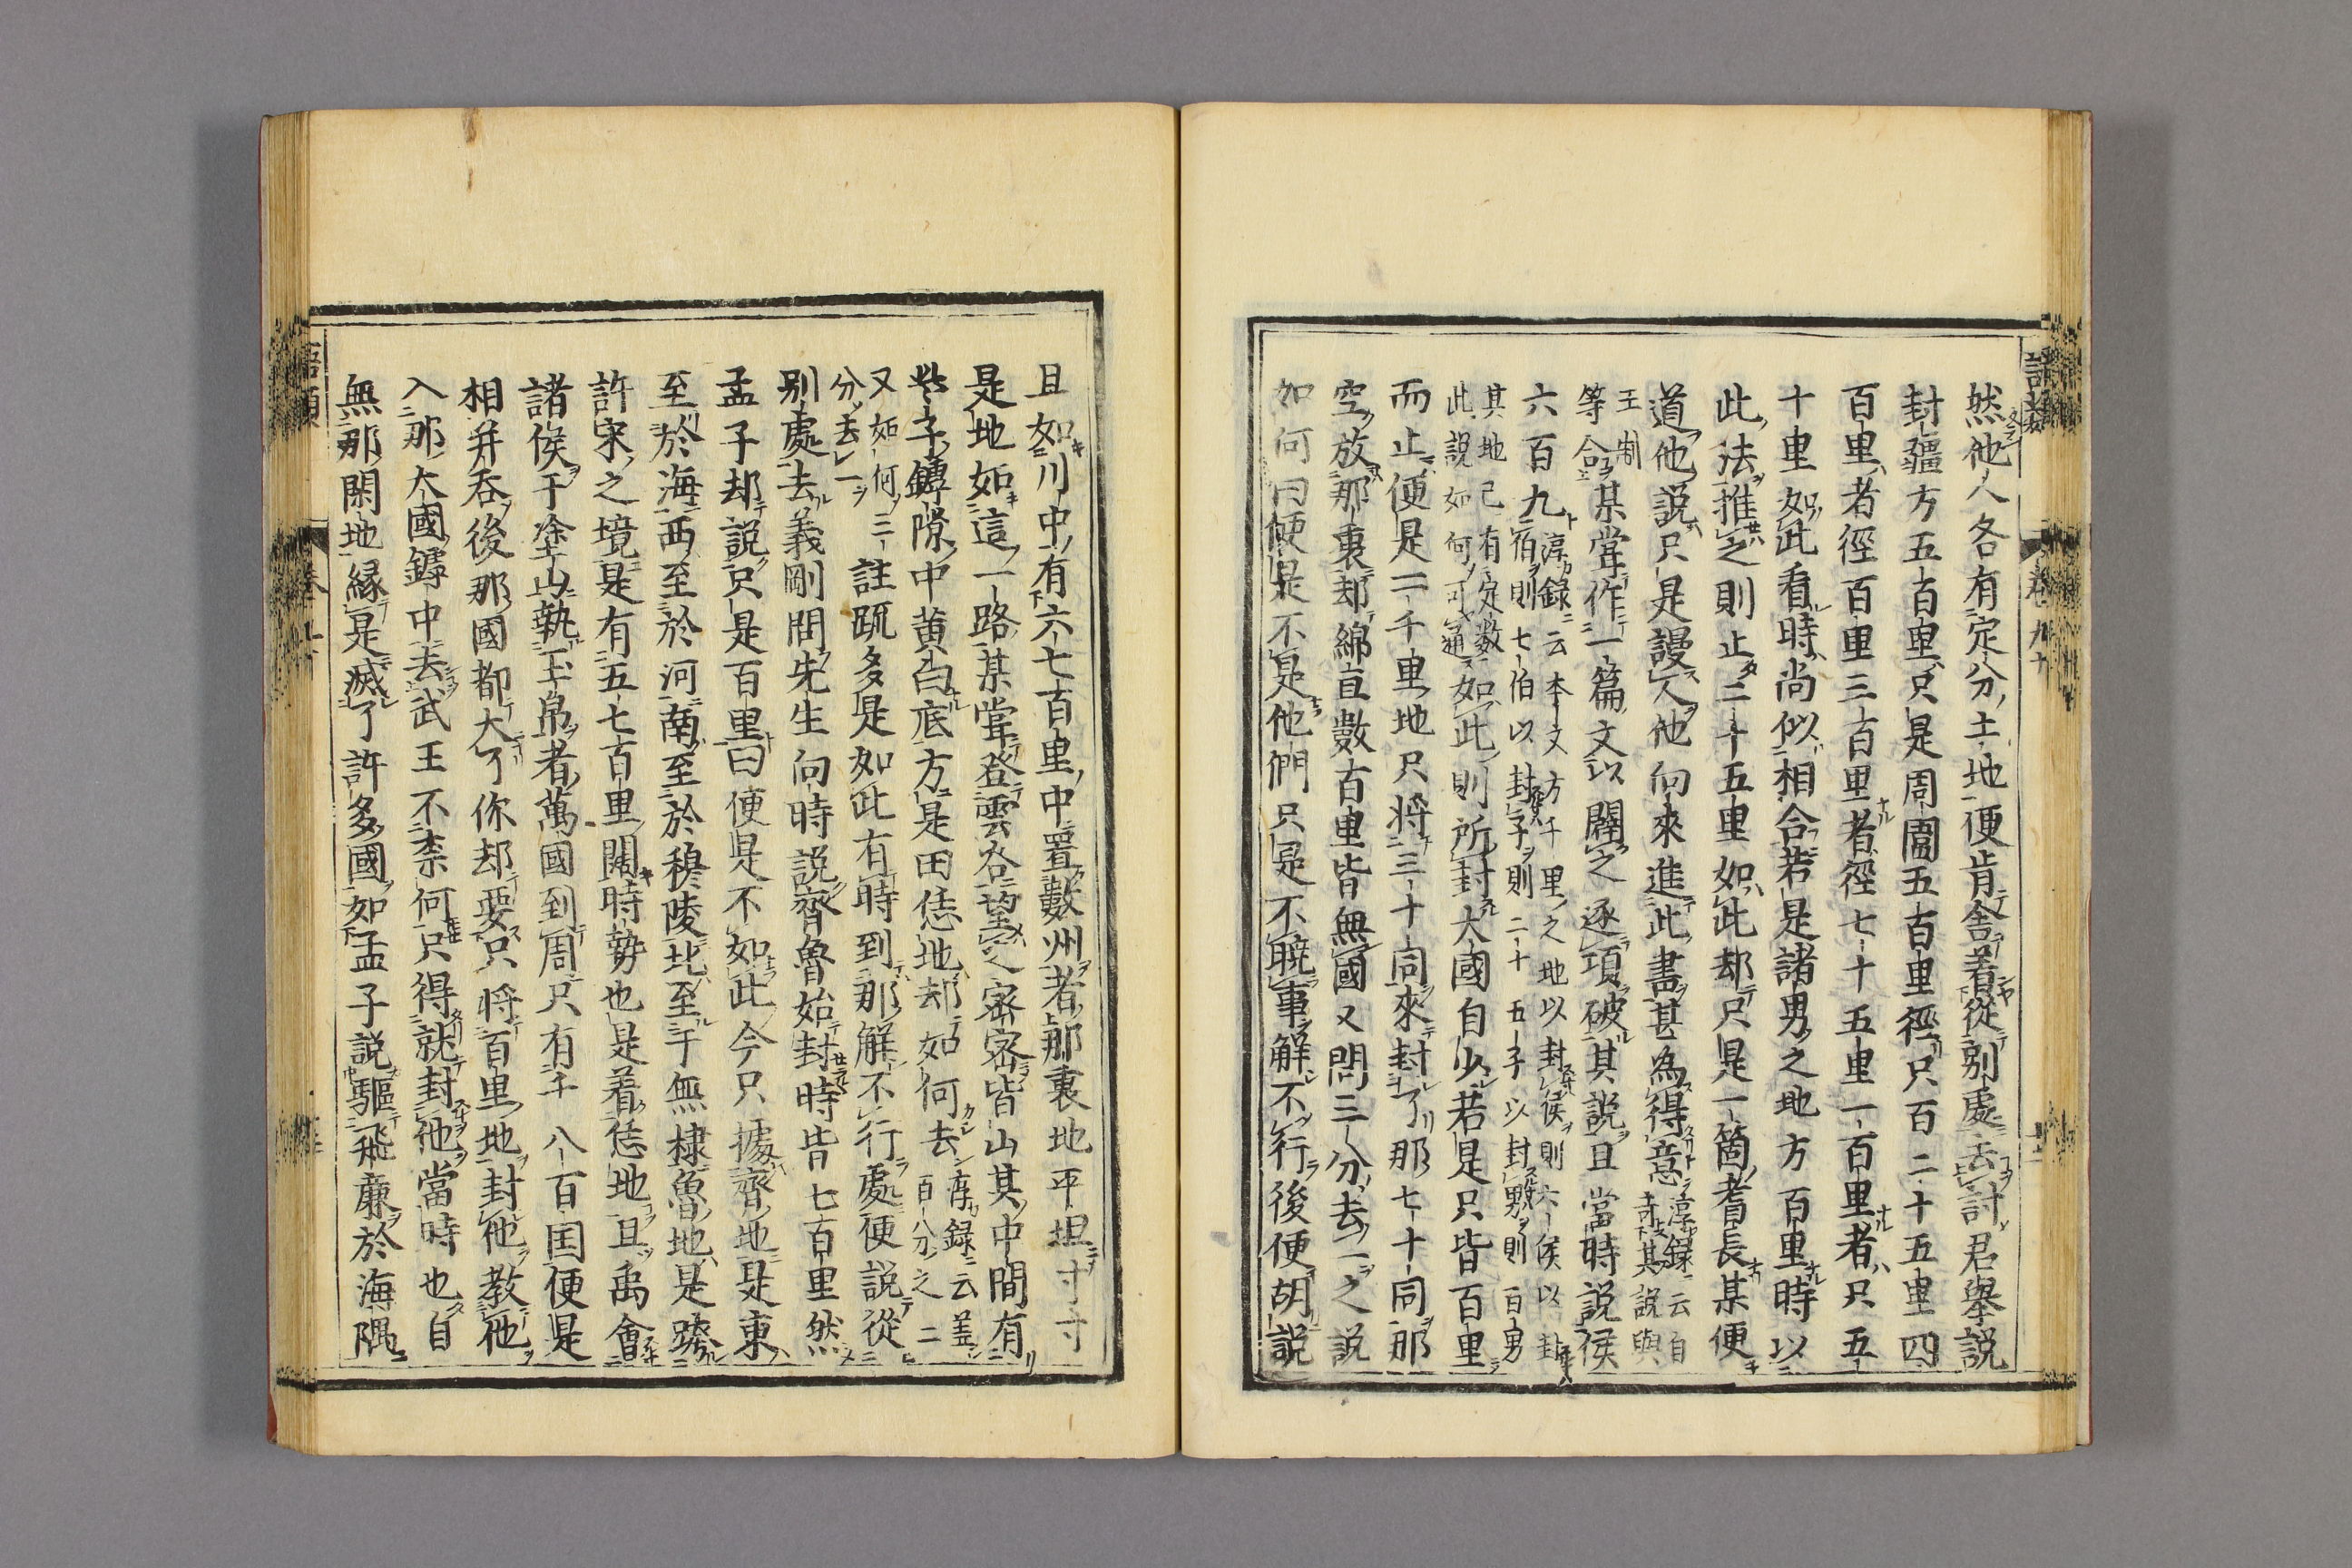 然他人各有定分土地便肯舎着從別處去討君舉説
封疆方五百里只是周圍五百里徑只百二十五里四
百里者徑百里三百里者徑七十五里一百里者只五
十里如此看時尚似相合若是諸男之地方百里時以
此法推之則止二十五里如此却只是一箇耆長某便
道他説只是謾人他向來進此書甚為得意淳録云自奇其説與
王制等合某嘗作一篇文以闢之逐項破其説且當時説侯
六百九淳録云本文方千里之地以封侯則六侯以封
伯則七伯以封子則二十五子以封男則百男
其地已有定数此説如何可通如此則所封大國自少若是只皆百里
而止便是一千里地只将三十同來封了那七十同那
空放那裏却綿亘數百里皆無國又問三分去一之説
如何曰便是不是他們只是不暁事解不行後便胡説
且如川中有六七百里中置數州者那裏地平坦寸寸
是地如這一路某嘗登雲谷望之密密皆山其中間有
些子罅隙中黄白底方是田恁地却如何去淳録云蓋百八分之二
又如何三分去一註疏多是如此有時到那解不行處便説從
別處去義剛問先生向時説齊魯始封時皆七百里然
孟子却説只是百里曰便是不如此今只據齊地是東
至於海西至於河南至於穆陵北至于無棣魯地是跨
許宋之境是有五七百里闊時勢也是着恁地且禹會
諸侯于塗山執玉帛者萬國到周只有千八百国便是
相并呑後那國都大了你却要只将百里地封他教他
入那大國罅中去武王不柰何只得就封他當時也自
無那閑地縁是滅了許多國如孟子説驅飛廉於海隅